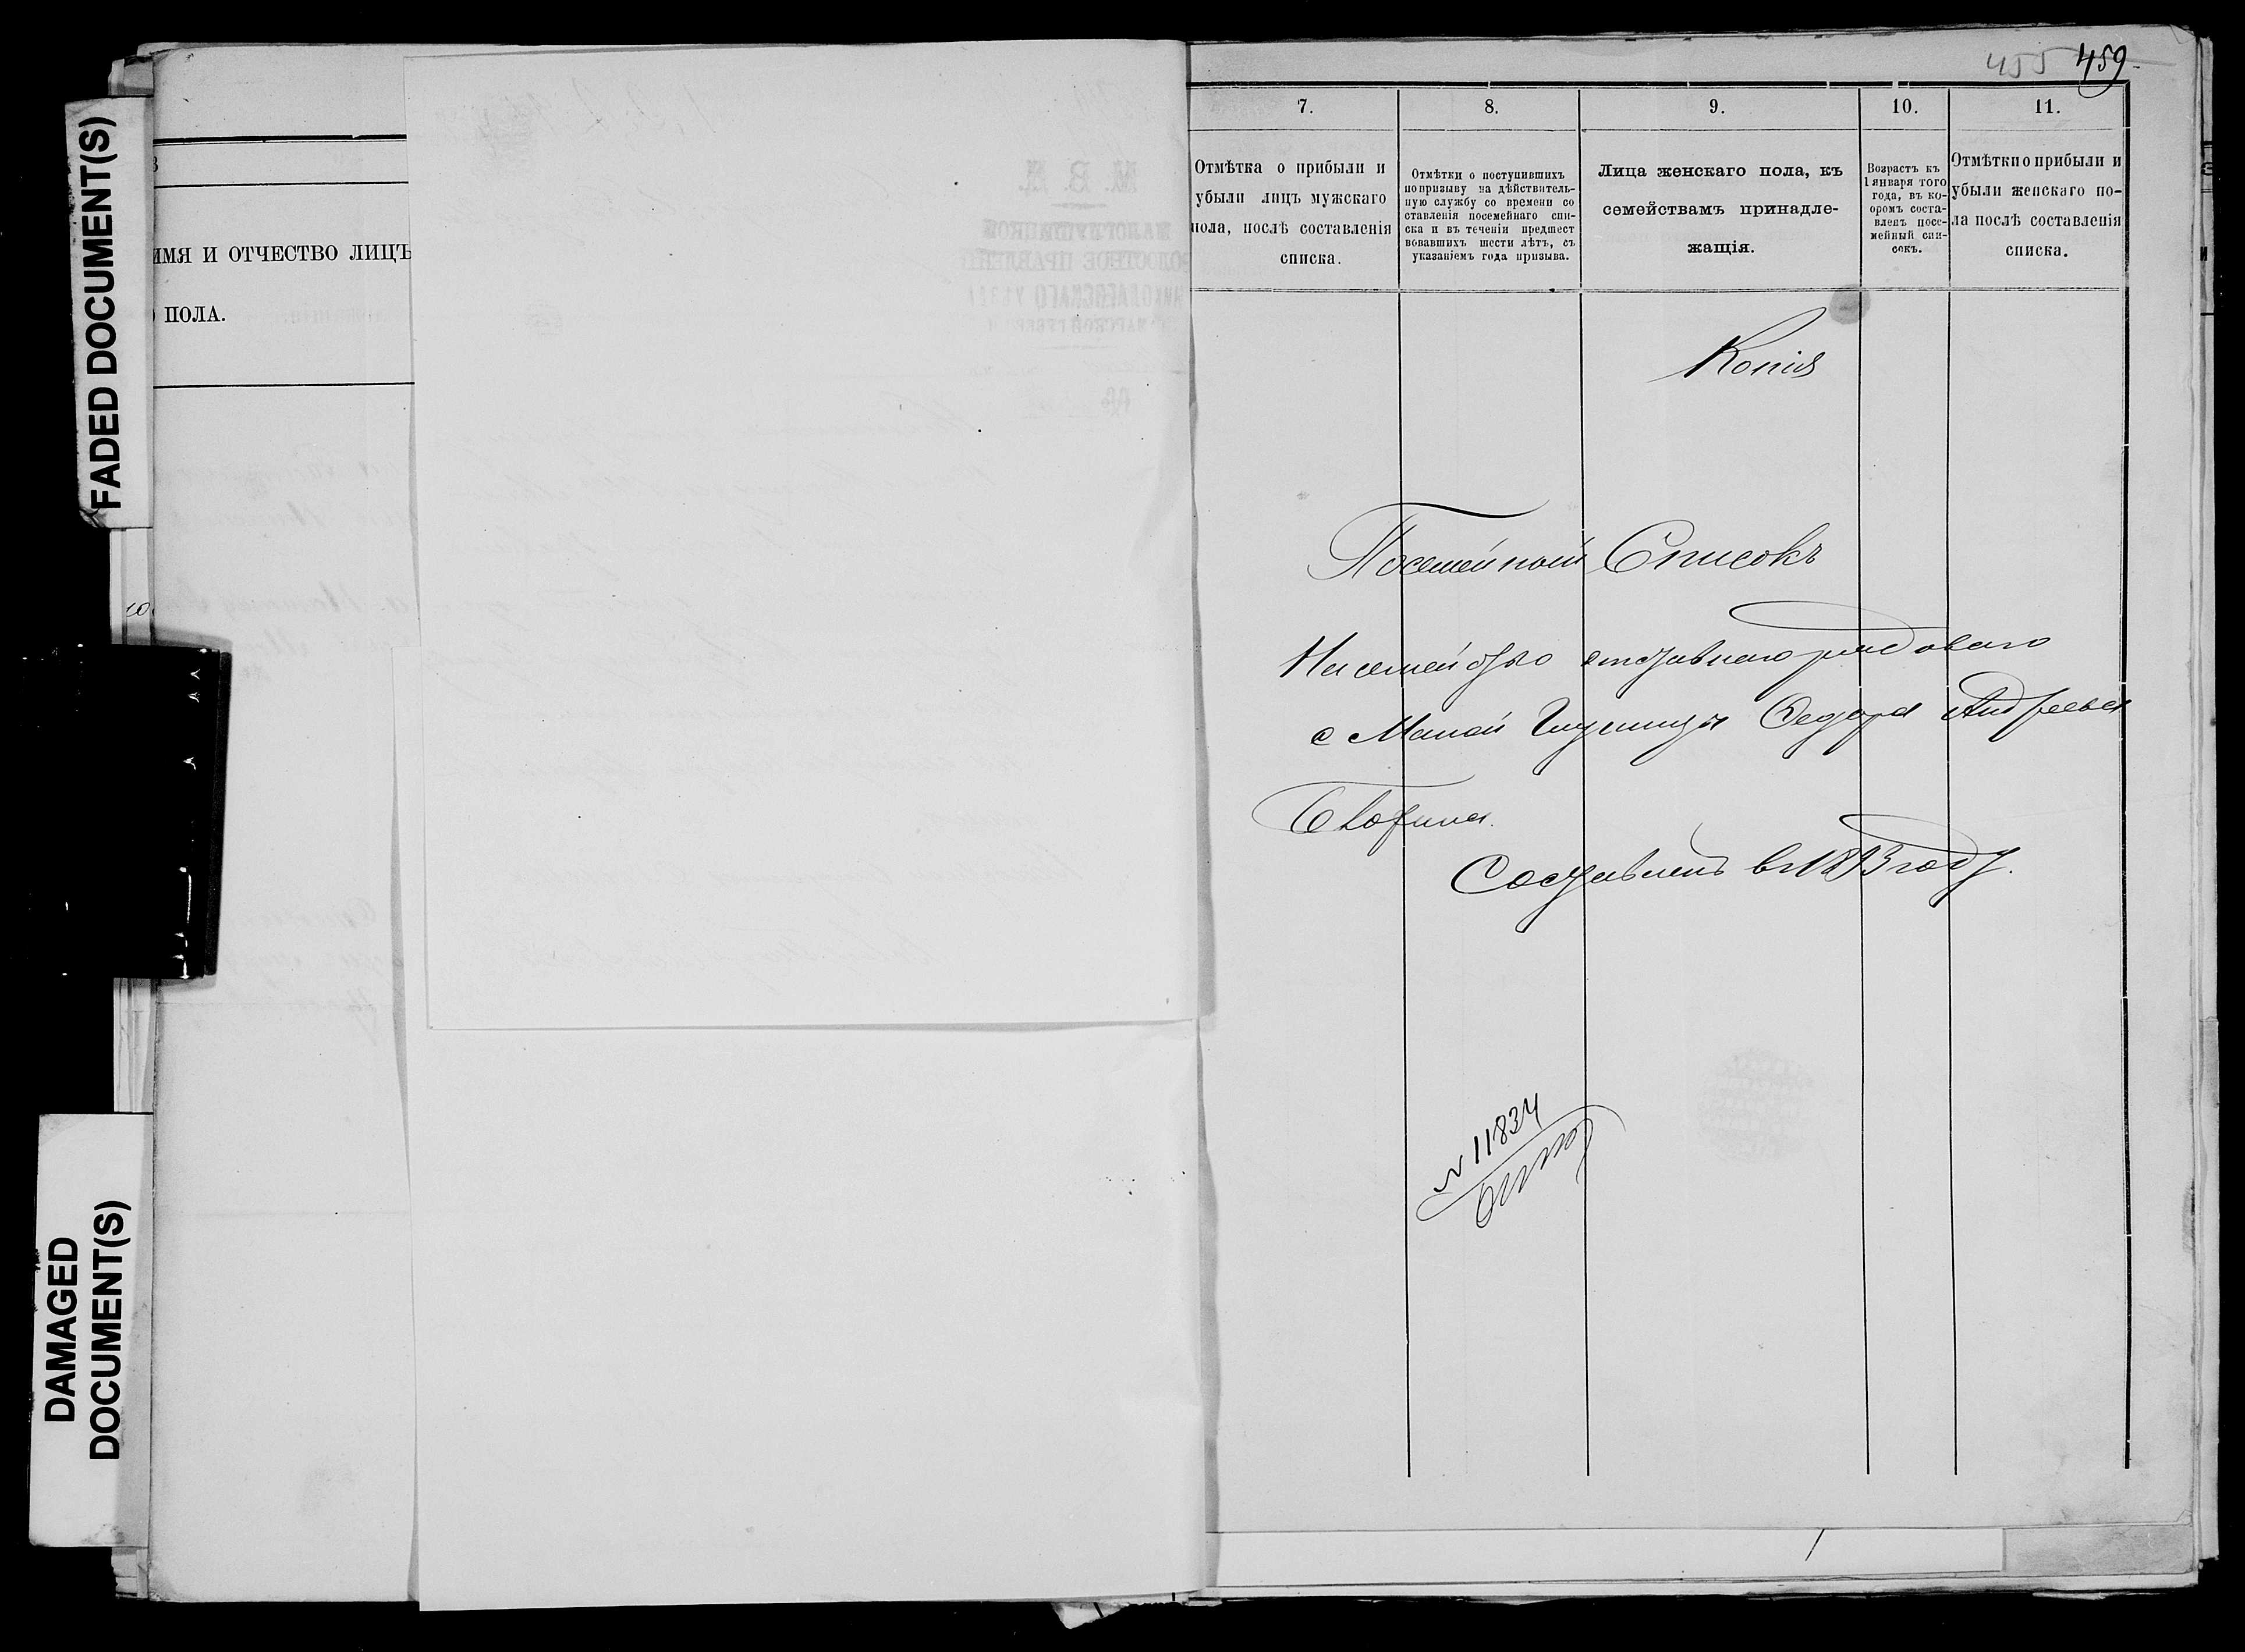 FADED DOCUMENT(S)
DAMAGED
DOCUMENT(S)
ИМЯ И ОТЧЕСТВО ЛИЦЪ
ПОЛА.
455 459
7.
Отмѣтка о прибыли и
убыли лицъ мужскаго
пола, послѣ составленія
списка.
8.
Отмѣтки о поступившихъ
по призыву на дѣйствитель-
ную службу со времени со
ставленія посемейнаго спи-
ска и въ теченіи предшест
вовавшихъ шести лѣтъ, съ
указаніемъ года призыва.
9.
Лица женскаго пола, къ
семействамъ принадле-
жащія.
10.
Возрастъ къ
1 января того
года, въ ко-
оромъ соста-
вленъ посе-
мейный спи-
сокъ.
11.
Отмѣтки о прибыли и
убыли женскаго по-
ла послѣ составленія
списка.
Копия
Посемейный Списокъ
На семейство отставнаго рядоваго
с Малой Глушицы Федора Андреева
Составленъ в 1893 году.
№ 11834